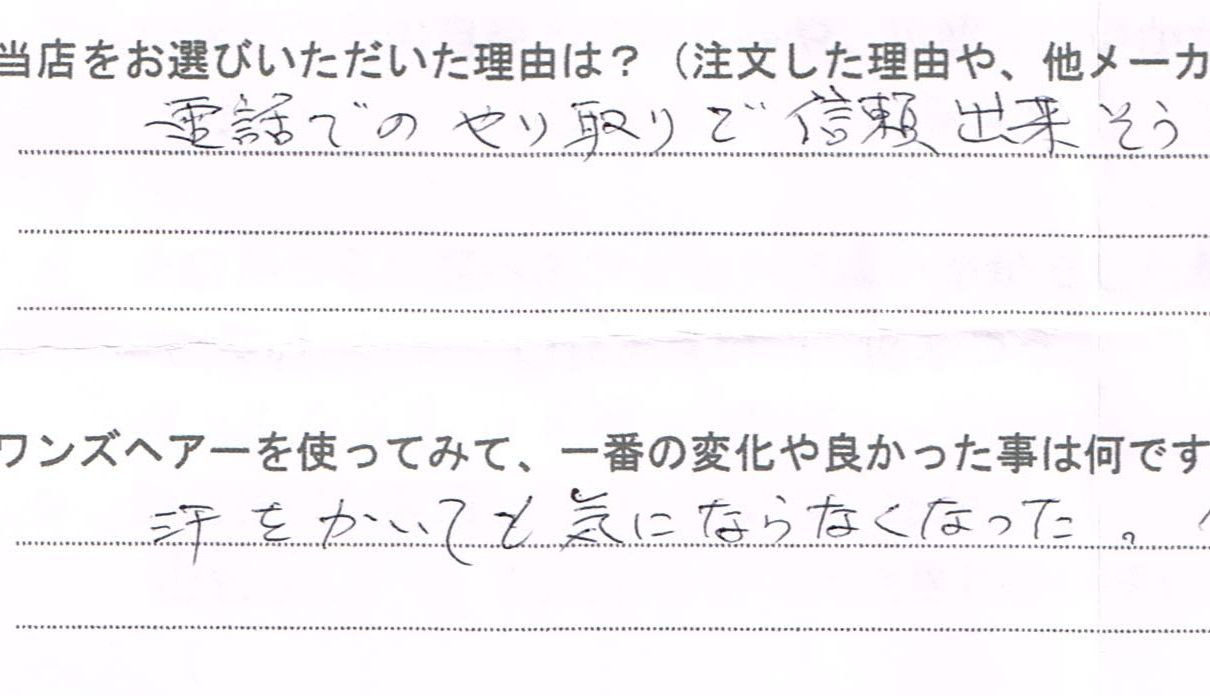 当店をお選びいただいた理由は？（注文した理由や、他メーカ
電話でのやり取りで信頼出来そう
ワンズヘアーを使ってみて、一番の変化や良かった事は何です
汗をかいても気にならなくなった。